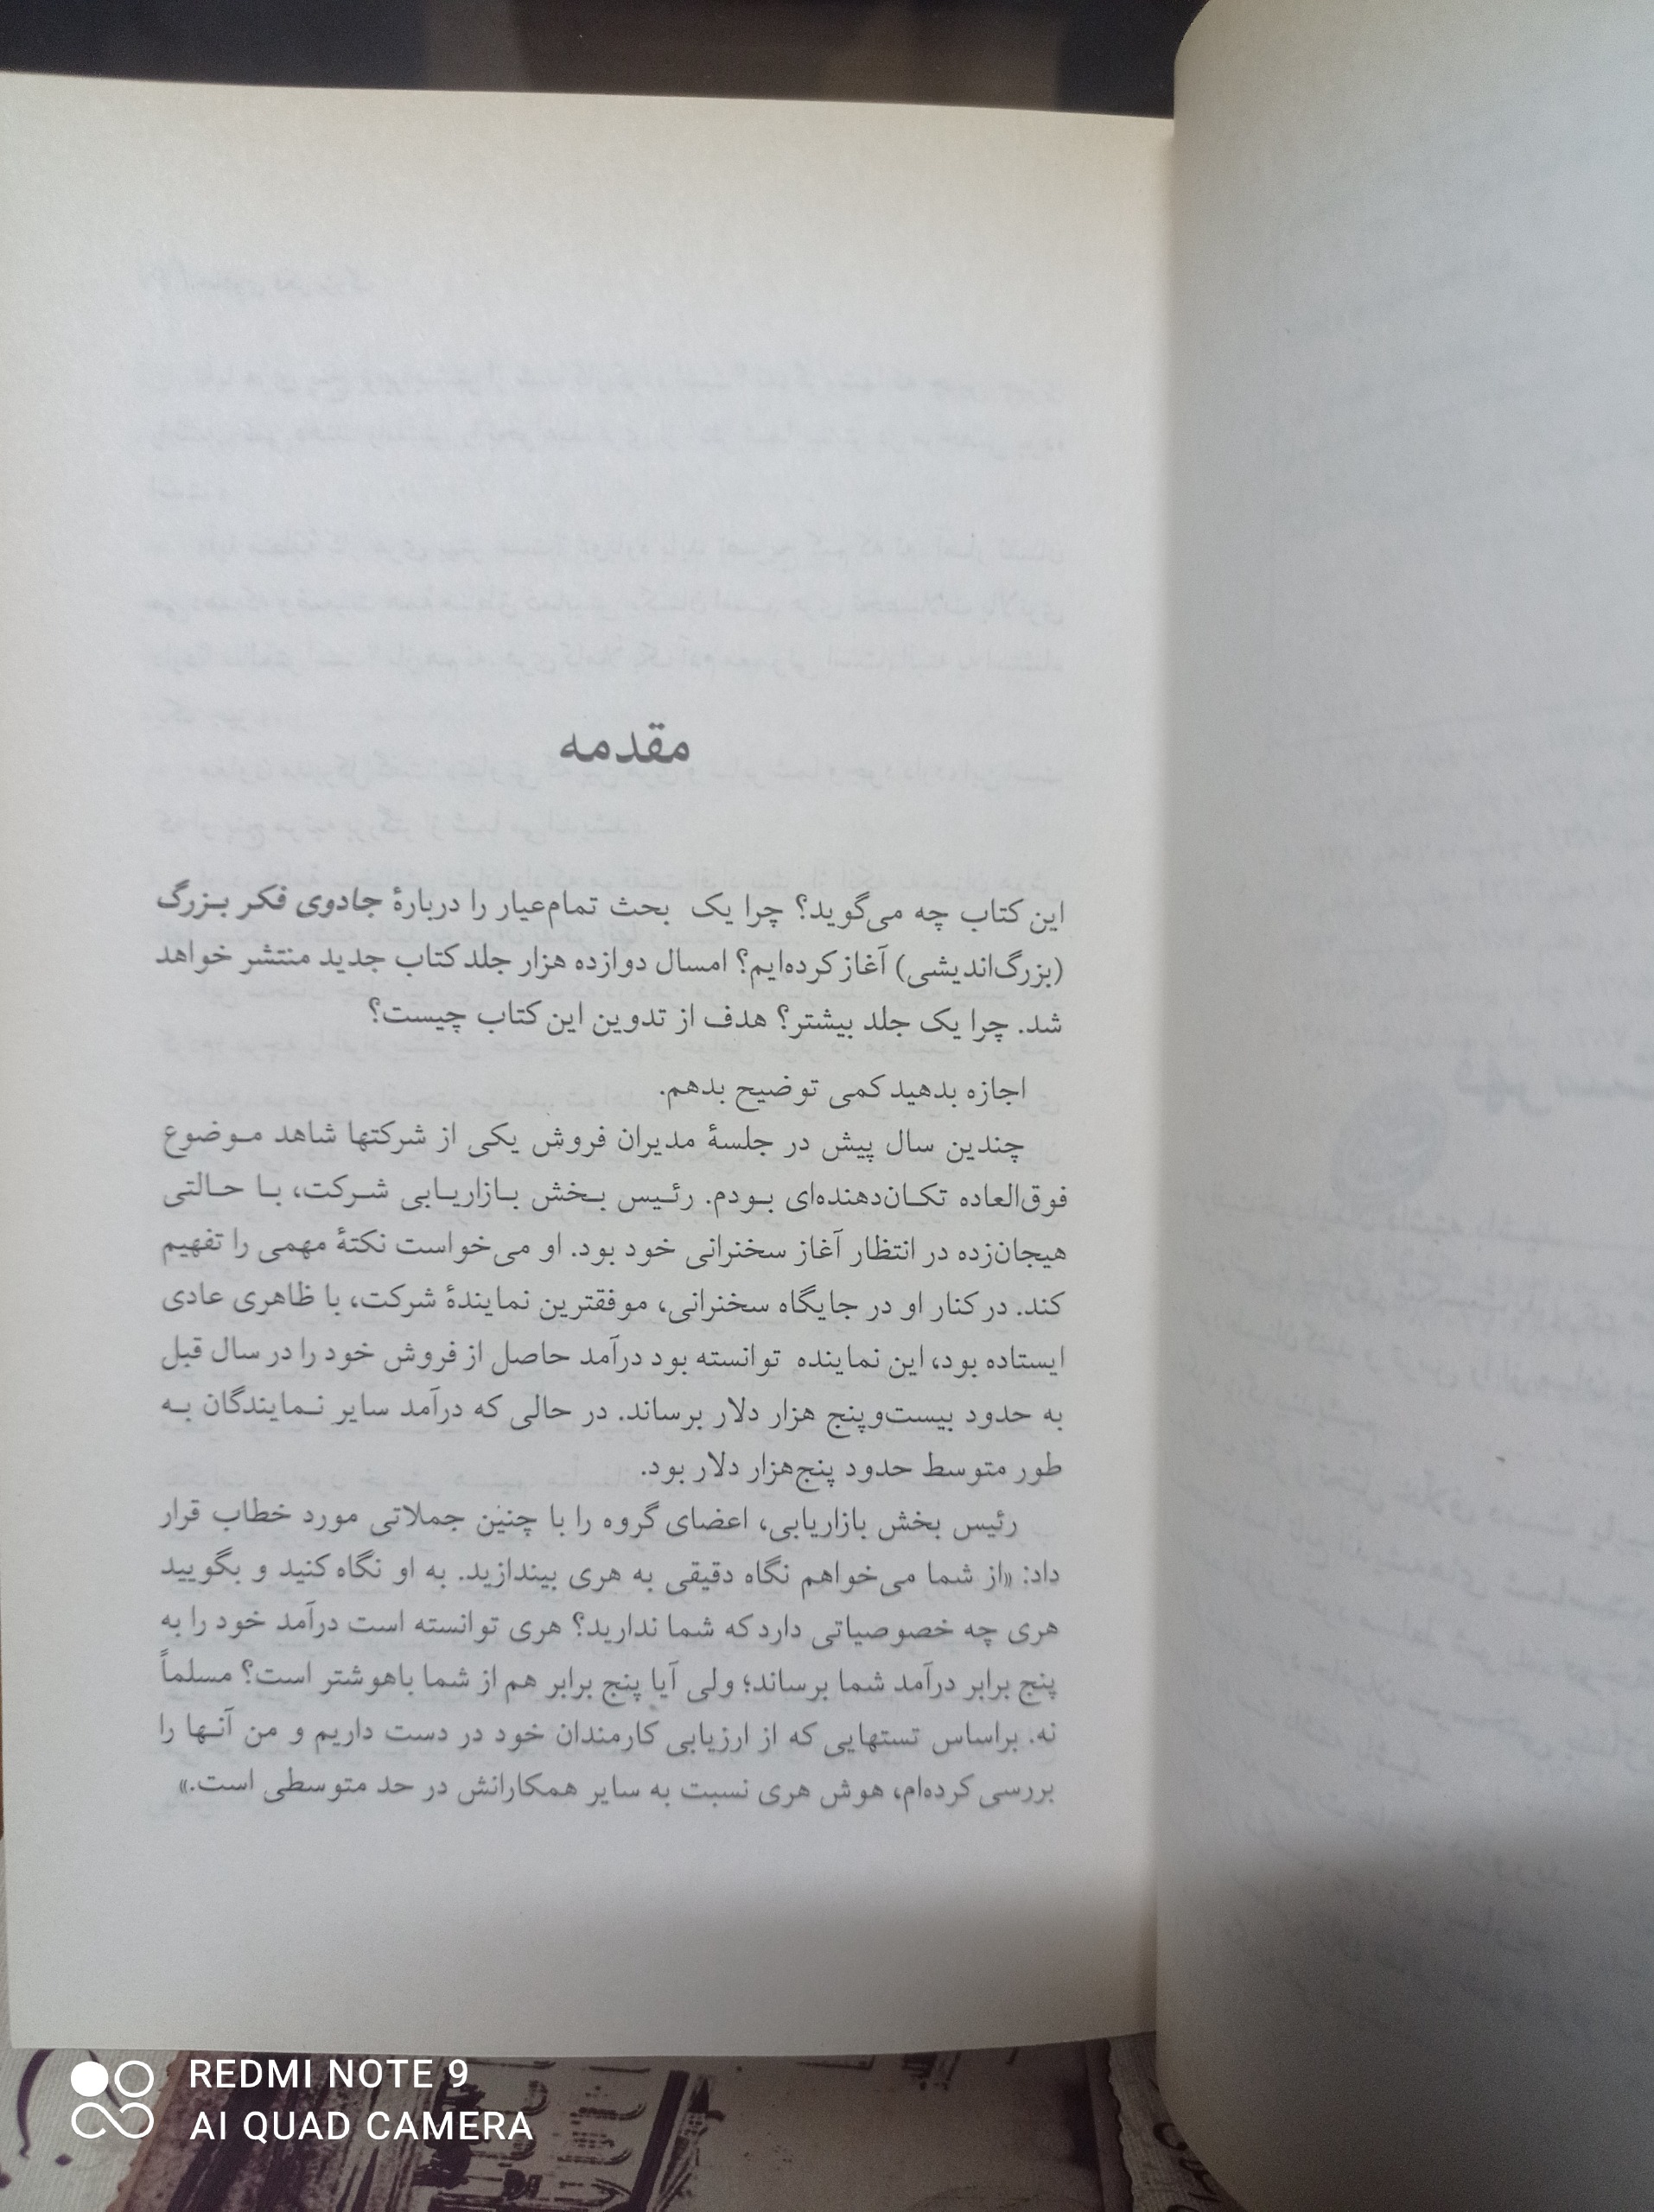 مقدمه
این کتاب چه می‌گوید؟ چرا یک بحث تمام‌عیار را دربارهٔ جادوی فکر بـزرگ
(بزرگ‌اندیشی) آغاز کرده‌ایم؟ امسال دوازده هزار جلد کتاب جدید منتشر خواهد
شد. چرا یک جلد بیشتر؟ هدف از تدوین این کتاب چیست؟
اجازه بدهید کمی توضیح بدهم.
چندین سال پیش در جلسهٔ مدیران فروش یکی از شرکتها شاهد مـوضوع
فوق‌العاده تکـان‌دهنده‌ای بـودم. رئـیس بـخش بـازاریـابی شـرکت، بـا حـالتی
هیجان‌زده در انتظار آغاز سخنرانی خود بود. او می‌خواست نکتهٔ مهمی را تفهیم
کند. در کنار او در جایگاه سخنرانی، موفقترین نمایندهٔ شرکت، با ظاهری عادی
ایستاده بود، این نماینده توانسته بود درآمد حاصل از فروش خود را در سال قبل
به حدود بیست‌وپنج هزار دلار برساند. در حالی که درآمد سایر نـمایندگان بـه
طور متوسط حدود پنج‌هزار دلار بود.
رئیس بخش بازاریابی، اعضای گروه را با چنین جملاتی مورد خطاب قرار
داد: «از شما می‌خواهم نگاه دقیقی به هری بیندازید. به او نگاه کنید و بگویید
هری چه خصوصیاتی دارد که شما ندارید؟ هری توانسته است درآمد خود را به
پنج برابر درآمد شما برساند؛ ولی آیا پنج برابر هم از شما باهوشتر است؟ مسلماً
نه. براساس تستهایی که از ارزیابی کارمندان خود در دست داریم و من آنـها را
بررسی کرده‌ام، هوش هری نسبت به سایر همکارانش در حد متوسطی است.»
REDMI NOTE 9
AI QUAD CAMERA